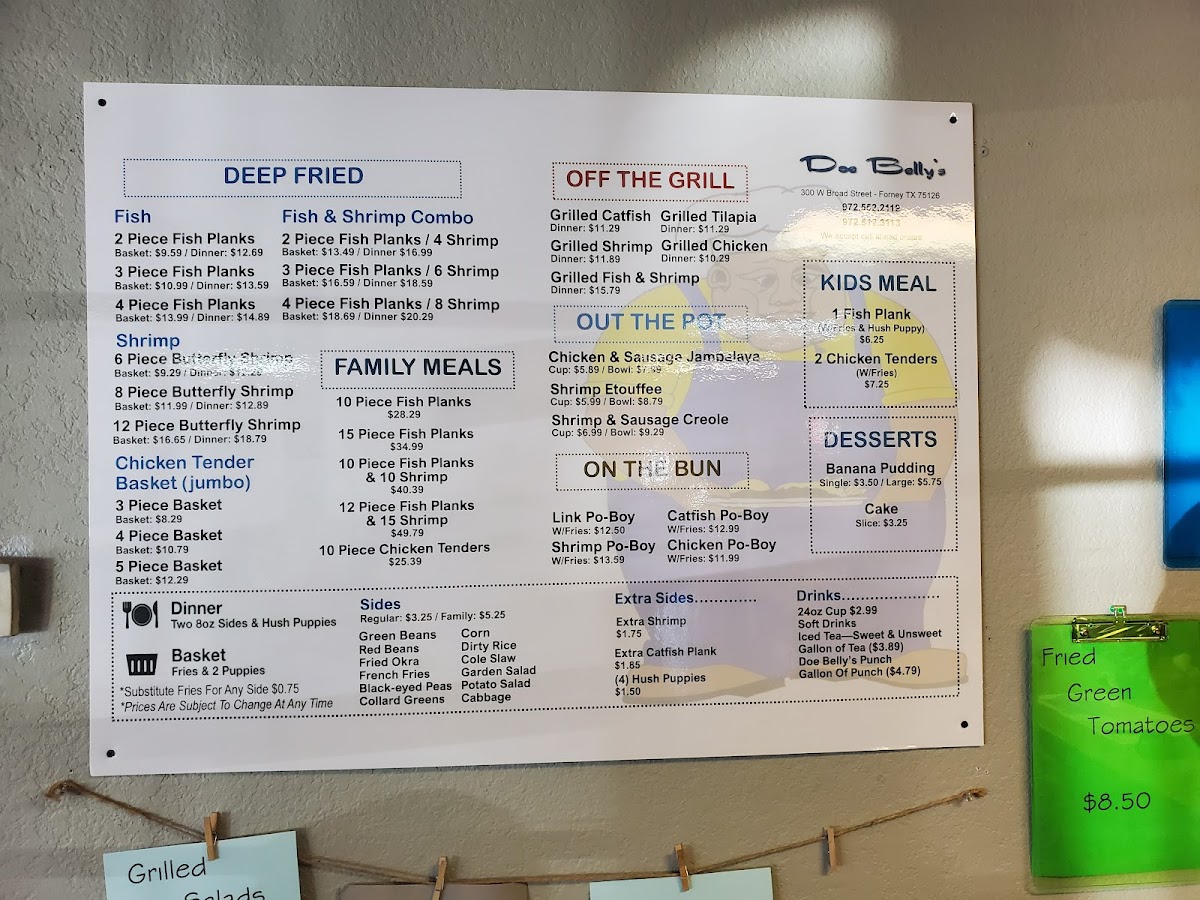 DEEP FRIED
Fish
2 Piece Fish Planks
Basket: $9.59 / Dinner: $12.69
3 Piece Fish Planks
Basket: $10.99 / Dinner: $13.59
4 Piece Fish Planks
Basket: $13.99 / Dinner: $14.89
Shrimp
6 Piece Butterfly Shrimp
Basket: $9.29 / Dinner:
8 Piece Butterfly Shrimp
Basket: $11.99 / Dinner: $12.89
12 Piece Butterfly Shrimp
Basket: $16.65 / Dinner: $18.79
Chicken Tender
Basket (jumbo)
3 Piece Basket
Basket: $8.29
4 Piece Basket
Basket: $10.79
5 Piece Basket
Basket: $12.29
Fish & Shrimp Combo
2 Piece Fish Planks / 4 Shrimp
Basket: $13.49 / Dinner $16.99
3 Piece Fish Planks / 6 Shrimp
Basket: $16.59 / Dinner $18.59
4 Piece Fish Planks / 8 Shrimp
Basket: $18.69 / Dinner $20.29
FAMILY MEALS
10 Piece Fish Planks
$28.29
15 Piece Fish Planks
$34.99
10 Piece Fish Planks
& 10 Shrimp
$40.39
12 Piece Fish Planks
& 15 Shrimp
$49.79
10 Piece Chicken Tenders
$25.39
OFF THE GRILL
Grilled Catfish
Dinner: $11.29
Grilled Tilapia
Dinner: $11.29
Grilled Shrimp
Dinner: $11.89
Grilled Chicken
Dinner: $10.29
Grilled Fish & Shrimp
Dinner: $15.79
OUT THE POT
Chicken & Sausage Jambalaya
Cup: $5.89 / Bowl:
Shrimp Etouffee
Cup: $5.99 / Bowl: $8.79
Shrimp & Sausage Creole
Cup: $6.99 / Bowl: $9.29
ON THE BUN
Link Po-Boy
W/Fries: $12.50
Catfish Po-Boy
W/Fries: $12.99
Shrimp Po-Boy
W/Fries: $13.59
Chicken Po-Boy
W/Fries: $11.99
Doe Belly's
300 W Broad Street - Forney TX 75126
972.552.2119
We accept call ahead orders
KIDS MEAL
1 Fish Plank
(W/Fries & Hush Puppy)
$6.25
2 Chicken Tenders
(W/Fries)
$7.25
DESSERTS
Banana Pudding
Single: $3.50 / Large: $5.75
Cake
Slice: $3.25
Dinner
Two 8oz Sides & Hush Puppies
Basket
Fries & 2 Puppies
*Substitute Fries For Any Side $0.75
*Prices Are Subject To Change At Any Time
Sides
Regular: $3.25 / Family: $5.25
Green Beans
Red Beans
Fried Okra
French Fries
Black-eyed Peas
Collard Greens
Corn
Dirty Rice
Cole Slaw
Garden Salad
Potato Salad
Cabbage
Extra Sides.............
Extra Shrimp
$1.75
Extra Catfish Plank
$1.85
(4) Hush Puppies
$1.50
Drinks....................
24oz Cup $2.99
Soft Drinks
Iced Tea—Sweet & Unsweet
Gallon of Tea ($3.89)
Doe Belly's Punch
Gallon Of Punch ($4.79)
Fried
Green
Tomatoes
$8.50
Grilled
Salads